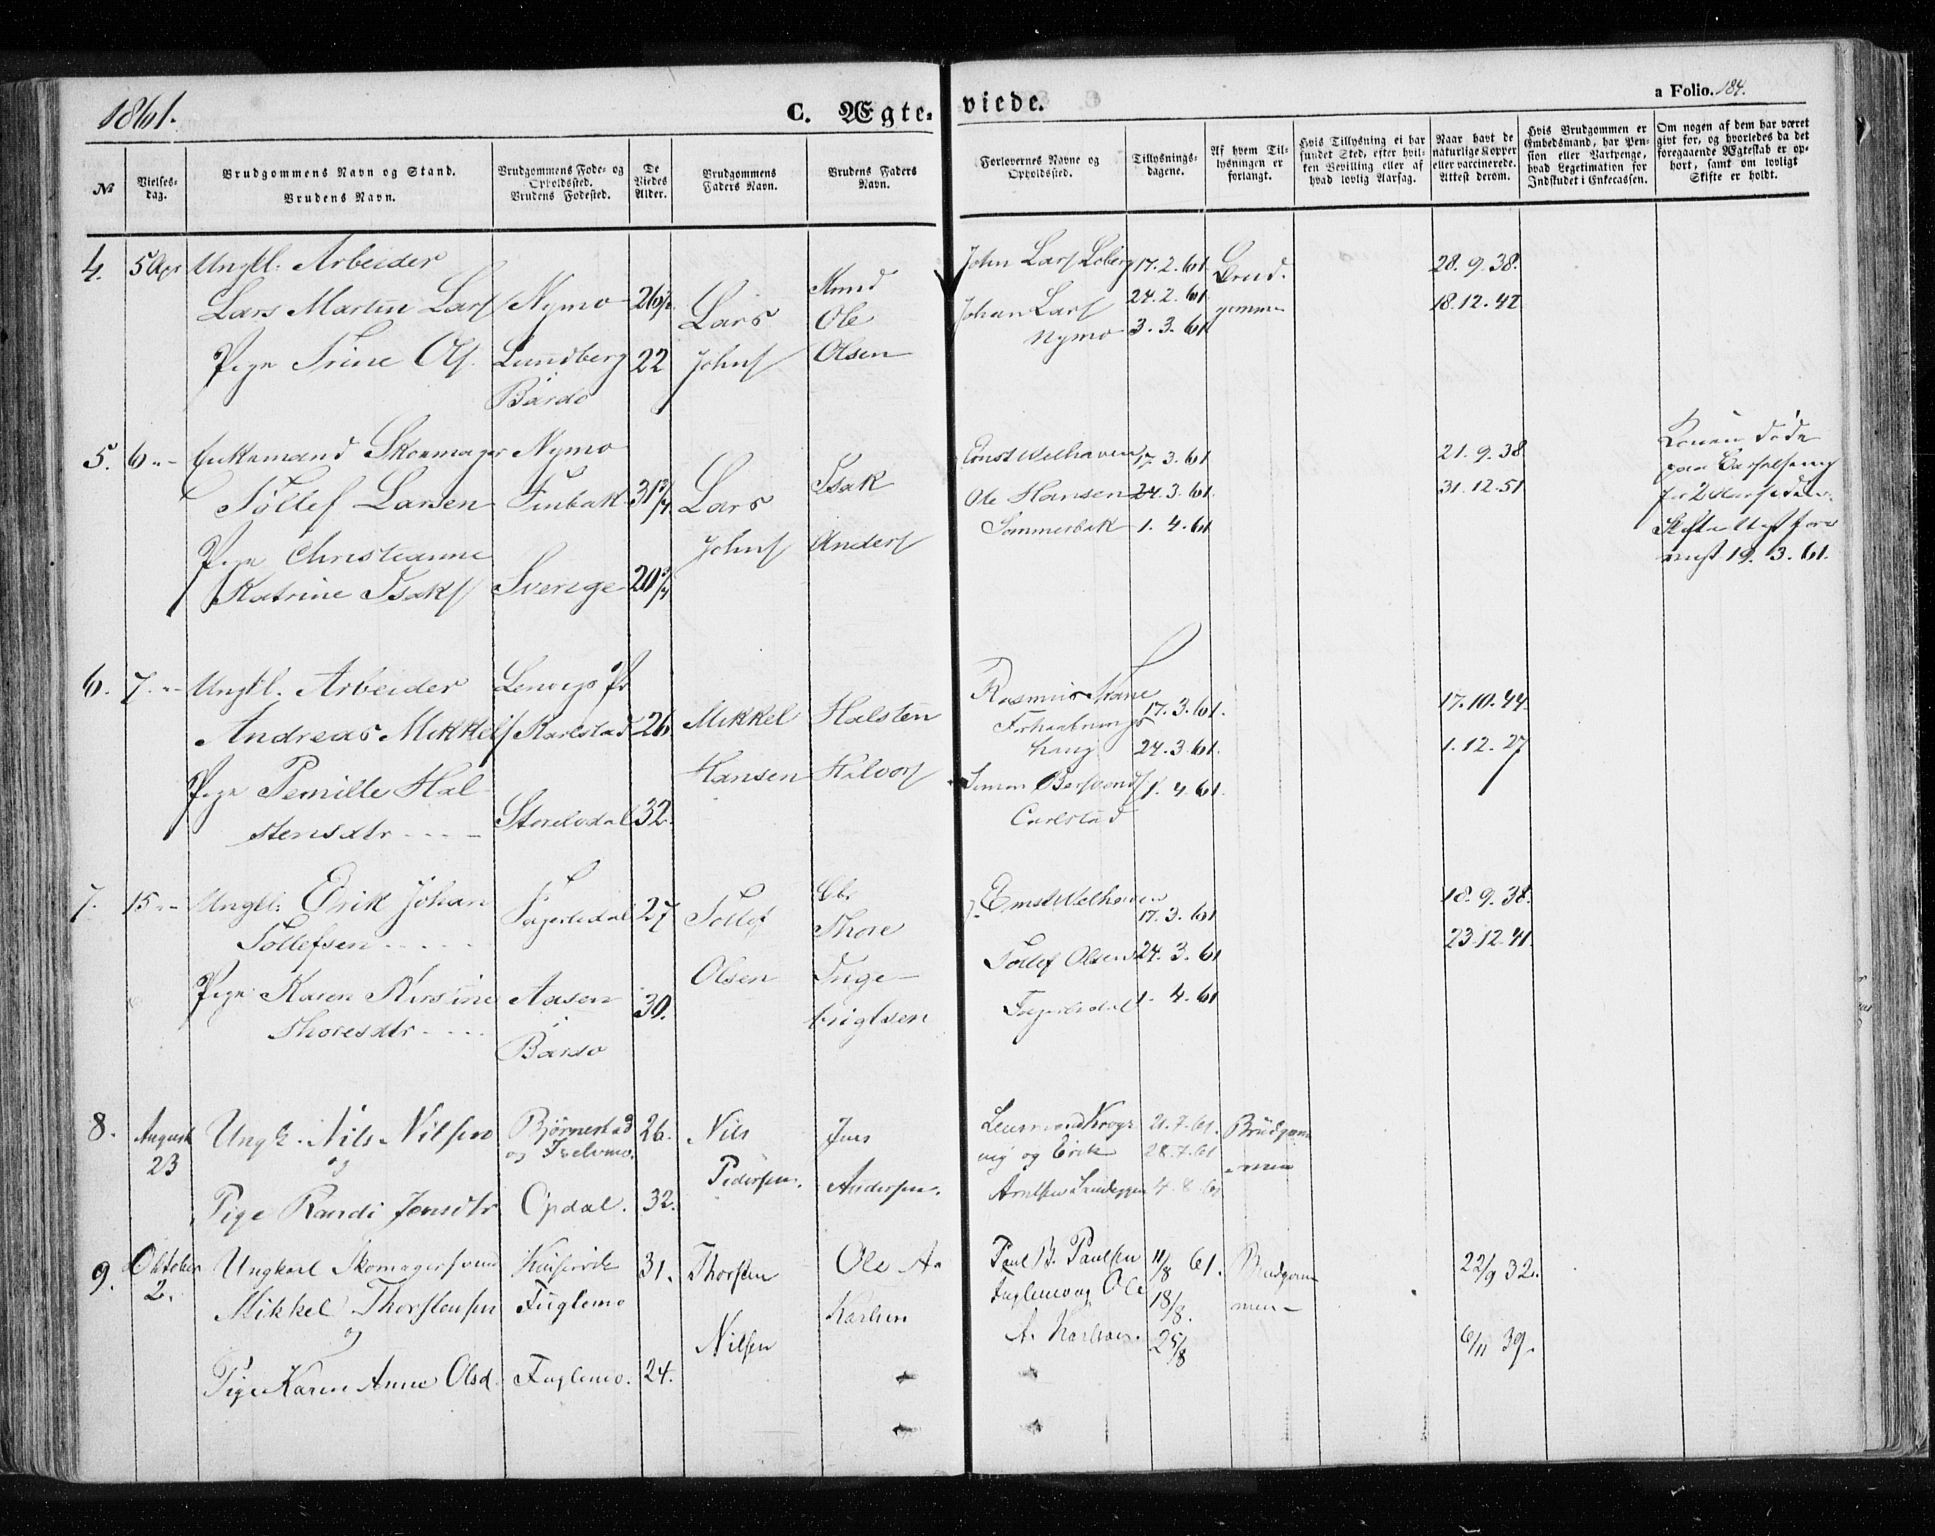 1861.
C. Ægte-
viede.
a Folio. 184.
No
Vielses-
dag.
Brudgommens Navn og Stand.
Brudens Navn.
Brudgommens Føde- og
Opholdssted.
Brudens Fødested.
De
Viedes
Alder.
Brudgommens
Faders Navn.
Brudens Faders
Navn.
Forlovernes Navne og
Opholdssted.
Tillysnings-
dagene.
Af hvem Til-
lysningen er
forlangt.
Hvis Tillysning ei har
fundet Sted, efter hvil-
ken Bevilling eller af
hvad lovlig Aarsag.
Naar havt de
naturlige Kopper
eller vaccinerede.
Attest derom.
Hvis Brudgommen er
Embedsmand, har Pen-
sion eller Vartpenge,
hvad Legitimation for
Indskudet i Enkecassen.
Om nogen af dem har været
givt for, og hvorledes da det
foregaaende Ægteskab er op-
hørt, samt om lovligt
Skifte er holdt.
4. 5 Apr Ungkl. Arbeider
Lars Martin Lars Nymo 26
Pige Trine Ols. Lundberg 22
Bardo
Lars
Johns
Knud
Ole
Olsen
John Lars Loberg 17.2.61
Johan Lars 24.2.61
Nymo 3.3.61
Brud-
gommen
28.9.38.
18.12.42
5. 6 Enkemand Skoemager Nymo
Tollef Larsen Finbak 31 3/4
Pige Christianne
Katrine Isaks Sverige 20 3/4
Lars
Johns
Isak
Anders
Ernst Welhaven 17.3.61
Ole Hansen 24.3.61
Sommerbak 1.4.61
21.9.38
31.12.51
Konen døde
paa Barselseng
for 2 Aar siden
Skifte
19.3.61.
6. 7 Ungkl. Arbeider Lenvigs Pr
Andreas Mikkels Karlstad 26
Pige Pernille Hal-
stensdtr Storelvdal 32.
Mikkel
Hansen
Halsten
Halvors
Rasmus
17.3.61.
haug 24.3.61
Simon 1.4.61.
Carlstad
17.10.44.
1.12.27
7. 15 Ungkl. Erik Johan
Tollefsen Fagerlidal 27
Pige Karen Kirstine Aasen 30.
Thoresdtr
Bardo
Tollef
Olsen
Thore
Inge-
brigtsen
Ernst Welhaven
17.3.61
Tollef Olsen 24.3.61
Fagerlidal 1.4.61
18.9.38.
23.12.41.
8. August
23
Ungk. Nils Nilsen
og
Pige Randi Jensdtr
Bjørnestad
og Frelsmo.
Opdal.
26.
32.
Nils
Pedersen.
Jens
Andersen.
21.7.61.
vig og Erik 28.7.61
4.8.61
Brudgom-
men
9. Oktober
2.
Ungkarl Skomagersvend
Mikkel Thorstensen
og
Pige Karen Anne Olsd.
Fuglemo
Fuglemo.
31.
24.
Thorsten
Nilsen
Ole A.
Karlsen
Paul B. Paulsen
Fuglemo og Ole
A. Karlsen.
11/8 61.
18/8.
25/8
Brudgom-
men
22/9 32.
6/11 39.